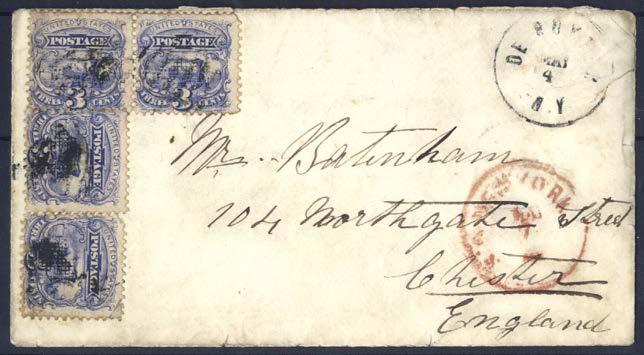 UNITED STATES
POSTAGE
3
THREE CENTS
UNITED STATES
POSTAGE
3
THREE CENTS
POSTAGE
POSTAGE
DE RUY
MAY
4
N.Y
NEW YORK
Mr. Batenham
104 Northgate Street
Chester
England